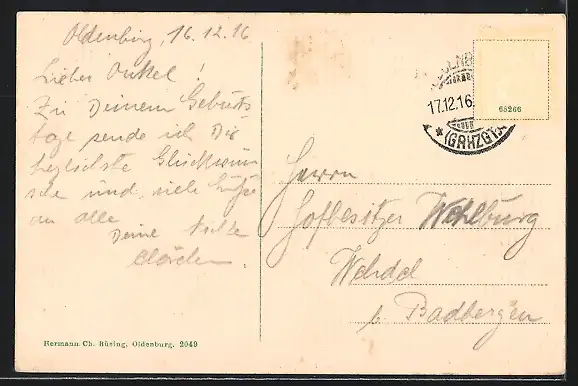 Oldenburg, 16.12.16
Lieber Onkel!
Zu Deinem Geburts
tage sende ich Dir
herzlichste Glückwün
sche und viele Grüße
an alle
Deine Nichte
Klärchen.
Hermann Ch. Büsing, Oldenburg. 2049
17.12.16
(GRHZGT)
68266
Herrn
Hofbesitzer Wehlburg
Wehdel
b. Badbergen